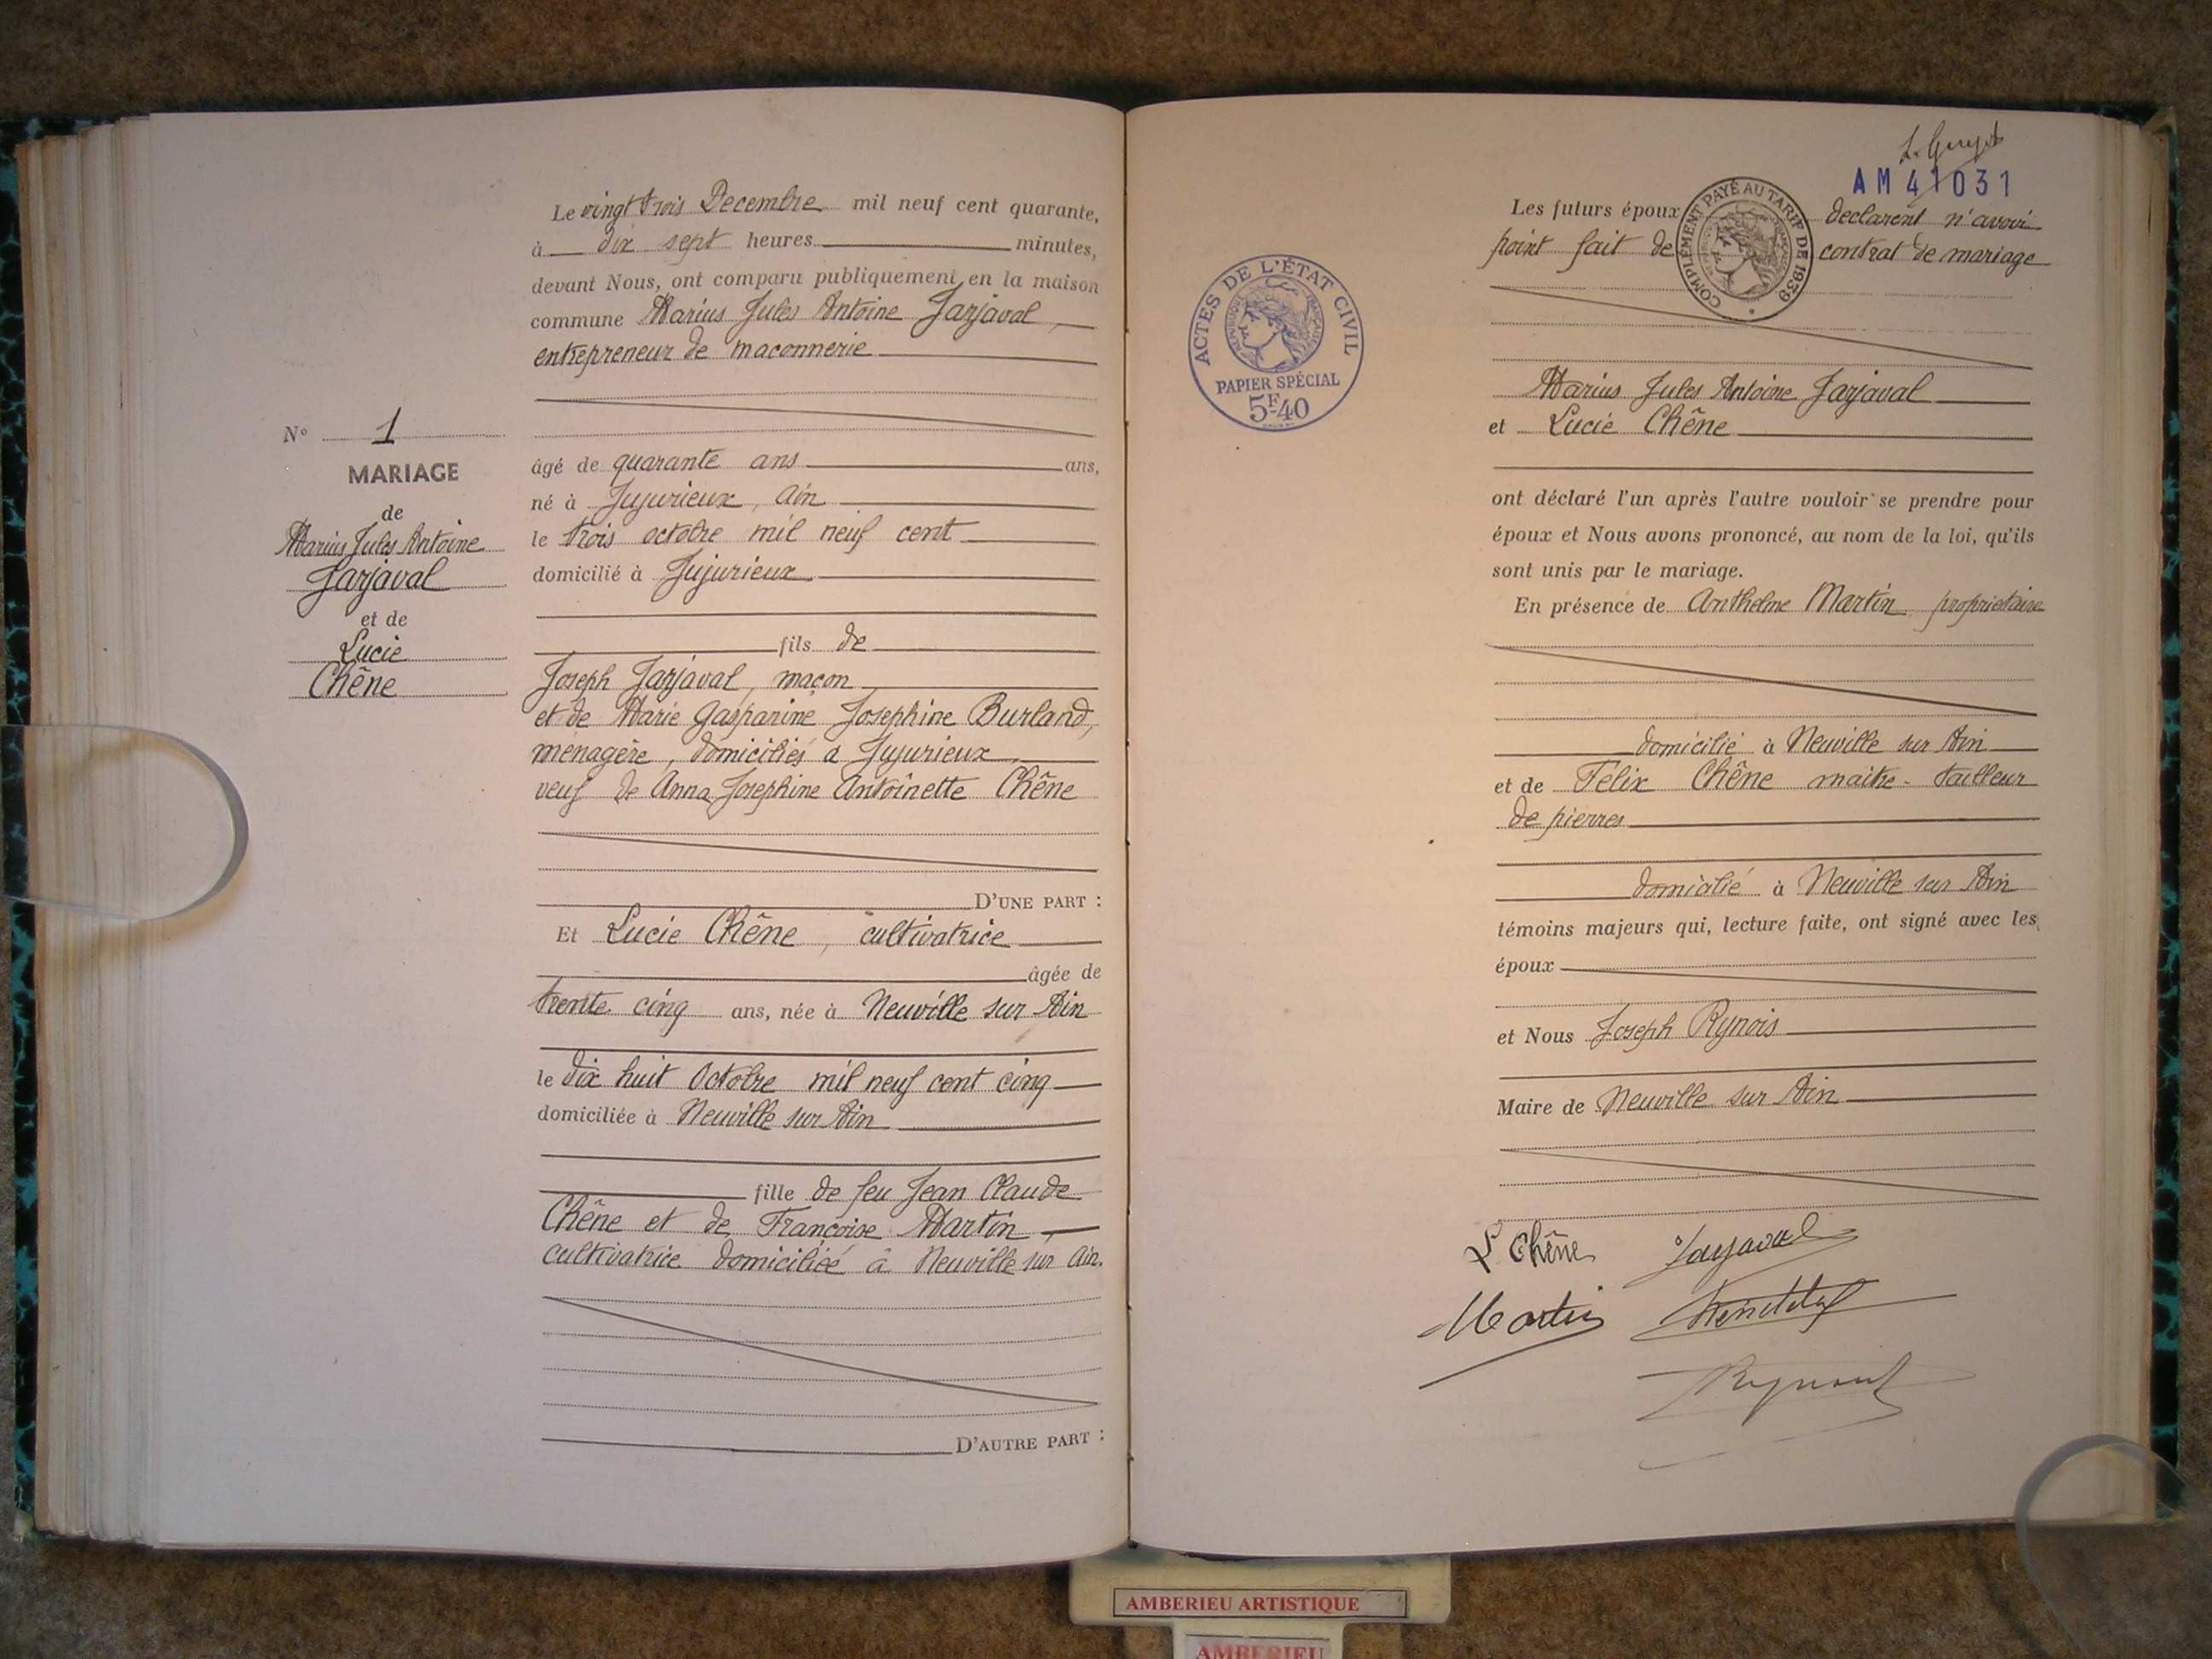 Le vingt trois Decembre mil neuf cent quarante,
à dix sept heures minutes,
devant Nous, ont comparu publiquement en la maison
commune Marius Jules Antoine Jarjaval,
entrepreneur de maconnerie
N° 1
MARIAGE
de
Marius Jules Antoine
Jarjaval
et de
Lucie
Chêne
âgé de quarante ans ans,
né à Jujurieux, Ain
le trois octobre mil neuf cent
domicilié à Jujurieux
fils de
Joseph Jarjaval, maçon
et de Marie Gasparine Josephine Burland,
menagère, domiciliés a Jujurieux,
veuf de Anna Josephine Antoinette Chêne
D'UNE PART :
Et Lucie Chêne, cultivatrice
âgée de
trente cinq ans, née à Neuville sur Ain
le dix huit Octobre mil neuf cent cinq
domiciliée à Neuville sur Ain
fille de feu Jean Claude
Chêne et de Françoise Martin,
cultivatrice domiciliée à Neuville sur Ain.
D'AUTRE PART :
AM 41031
Les futurs époux declarent n'avoir
point fait de contrat de mariage
COMPLÉMENT PAYÉ AU TARIF DE 1939
ACTES DE L'ÉTAT CIVIL
RÉPUBLIQUE FRANÇAISE
PAPIER SPÉCIAL
5F.40
Marius Jules Antoine Jarjaval
et Lucie Chêne
ont déclaré l'un après l'autre vouloir se prendre pour
époux et Nous avons prononcé, au nom de la loi, qu'ils
sont unis par le mariage.
En présence de Anthelme Martin proprietaire
domicilié à Neuville sur Ain
et de Félix Chêne maitre-tailleur
de pierres
domicilié à Neuville sur Ain
témoins majeurs qui, lecture faite, ont signé avec les
époux
et Nous Joseph Rynois
Maire de Neuville sur Ain
L Chêne Jarjaval
Martin
AMBERIEU ARTISTIQUE
AMBERIEU